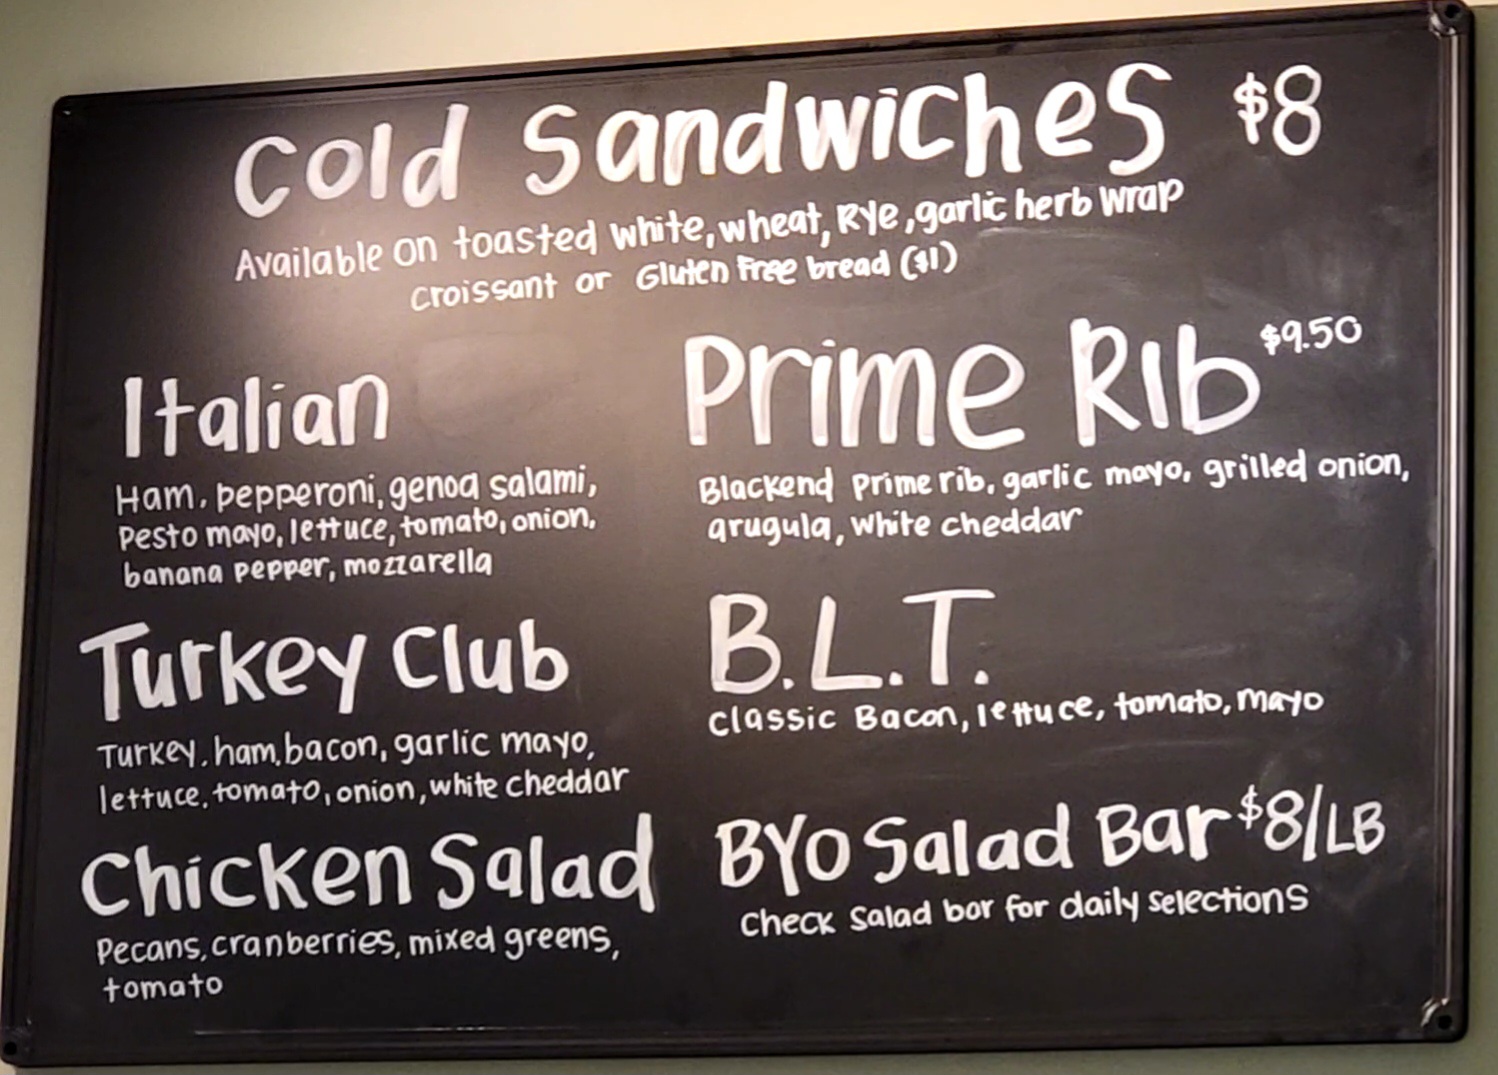 Cold Sandwiches $8
Available on toasted white, wheat, Rye, garlic herb wrap
Croissant or Gluten Free bread ($1)
Italian
Ham, pepperoni, genoa salami,
Pesto mayo, lettuce, tomato, onion,
banana pepper, mozzarella
Turkey Club
Turkey, ham, bacon, garlic mayo,
lettuce, tomato, onion, white cheddar
Chicken Salad
Pecans, cranberries, mixed greens,
tomato
Prime Rib $9.50
Blackend Prime rib, garlic mayo, grilled onion,
arugula, white cheddar
B.L.T.
Classic Bacon, lettuce, tomato, mayo
BYO Salad Bar $8/LB
Check Salad bar for daily selections